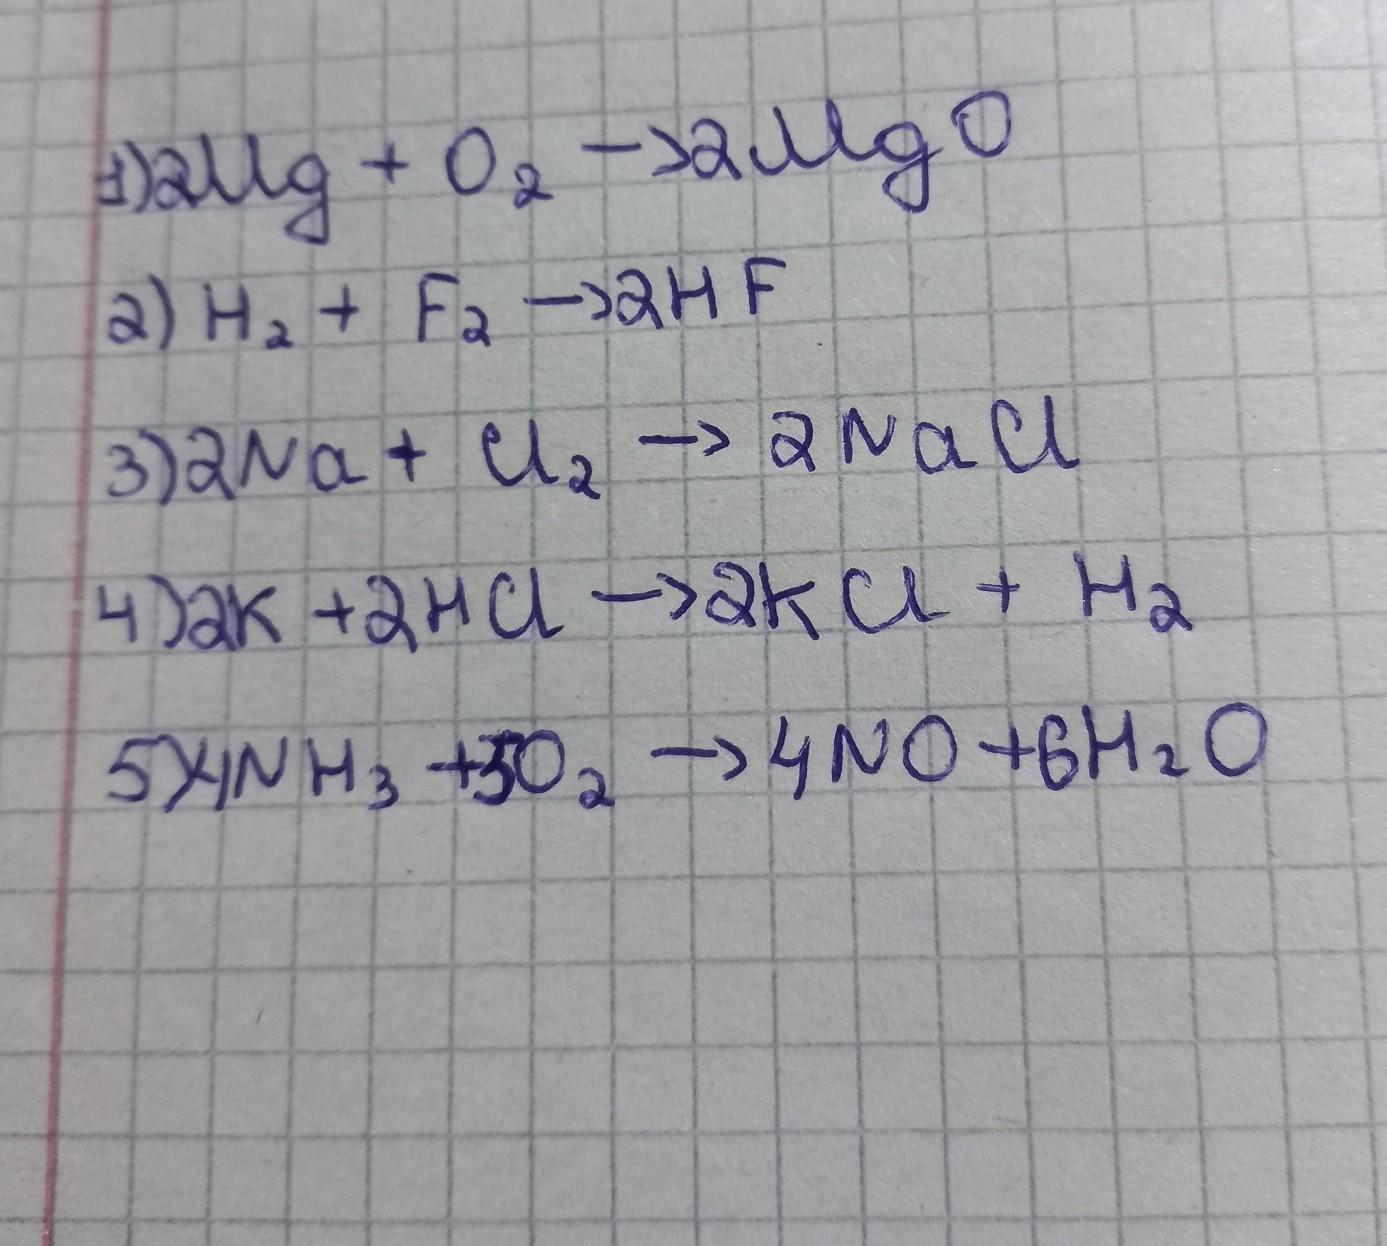 1) 2Mg + O₂ → 2MgO
2) H₂ + F₂ → 2HF
3) 2Na + Cl₂ → 2NaCl
4) 2K + 2HCl → 2KCl + H₂
5) 4NH₃ + 5O₂ → 4NO + 6H₂O